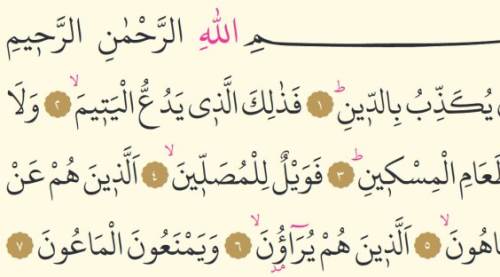 ـمِ اللّٰهِ الرَّحْمٰنِ الرَّحٖيمِ
يُكَذِّبُ بِالدّٖينِؕ ﴿١﴾ فَذٰلِكَ الَّذٖى يَدُعُّ الْيَتٖيمَۙ ﴿٢﴾ وَلَا
ـعَامِ الْمِسْكٖينِؕ ﴿٣﴾ فَوَيْلٌ لِلْمُصَلّٖينَۙ ﴿٤﴾ اَلَّذٖينَ هُمْ عَنْ
ـاهُونَۙ ﴿٥﴾ اَلَّذٖينَ هُمْ يُرَٓاؤُ۫نَۙ ﴿٦﴾ وَيَمْنَعُونَ الْمَاعُونَ ﴿٧﴾